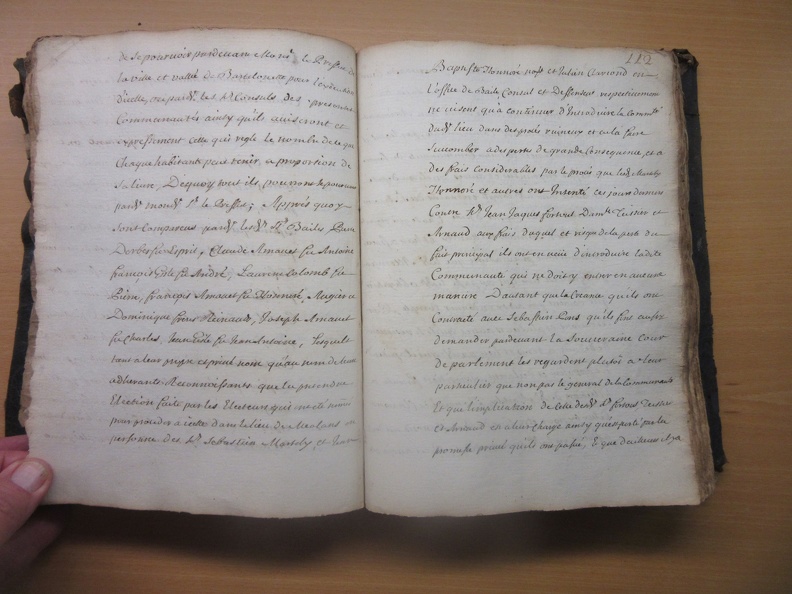 de se pourvoir pardevan Monsr le Prefet de
la ville et vallée de Barcelonette pour l'exécution
d'icelle, ou pard. les Srs Consuls des presentes
Communautés ainsy qu'ils aviseront et
expressement celle qui regle le nombre de
Chaque habitant peut tenir, a proportion de
sa livre, Dequoy tout ils pourront se pourvoir
pard. mond. Sr le Preffet; Apprés quoy
sont comparus pard. les d. Srs Baile
Derbes feu Esprit, Claude Arnaud feu Antoine
François feu André, Laurens Colomb feu
Pierre, François Arnaud feu Honnoré,
Dominique Arnaud, Joseph Arnaud
feu Charles, feu Jean Antoine, lesquels
tant a leur propre et privé nom qu'au nom de leurs
adherants Reconnoissants que la pretendue
Election faite par les Electeurs qui ont été nommés
pour proceder a icelle dans le lieu de Meolans en
personne des Srs Sebastien Martely, et Jean
112
Baptiste Honnoré nore et Julien Arnoud en
l'office de Baile, Consul et Deffenseur respectivement
ne visent qu'a continuer d'Introduire la Commté
dud. lieu dans des procés ruineux et a la faire
succomber a des pertes de grande Consequence, et a
des frais Considerables par le procés que les d. Martely
Honnoré et autres ont Intenté ces jours derniers
Contre Sr Jean Jaques fortoul Tissier et
Arnaud, aux frais duquel et vis a vis de la perte du
fait principal ils ont en veüe d'introduire ladite
Communaute qui ne doit y entrer en aucune
maniere D'autant que la Creance qu'ils ont
Contracté avec Sebastien Pons qu'ils font
demander pardevant la Souveraine Cour
de parlement les regardent plutôt a leur
particulier que non pas le general de la Communauté
Et que l'implication de cette de fortoul Tissier
et Arnaud en a leur charge ainsy qu'est porté par la
promesse privée qu'ils ont passé, Et que d'ailleurs il ya